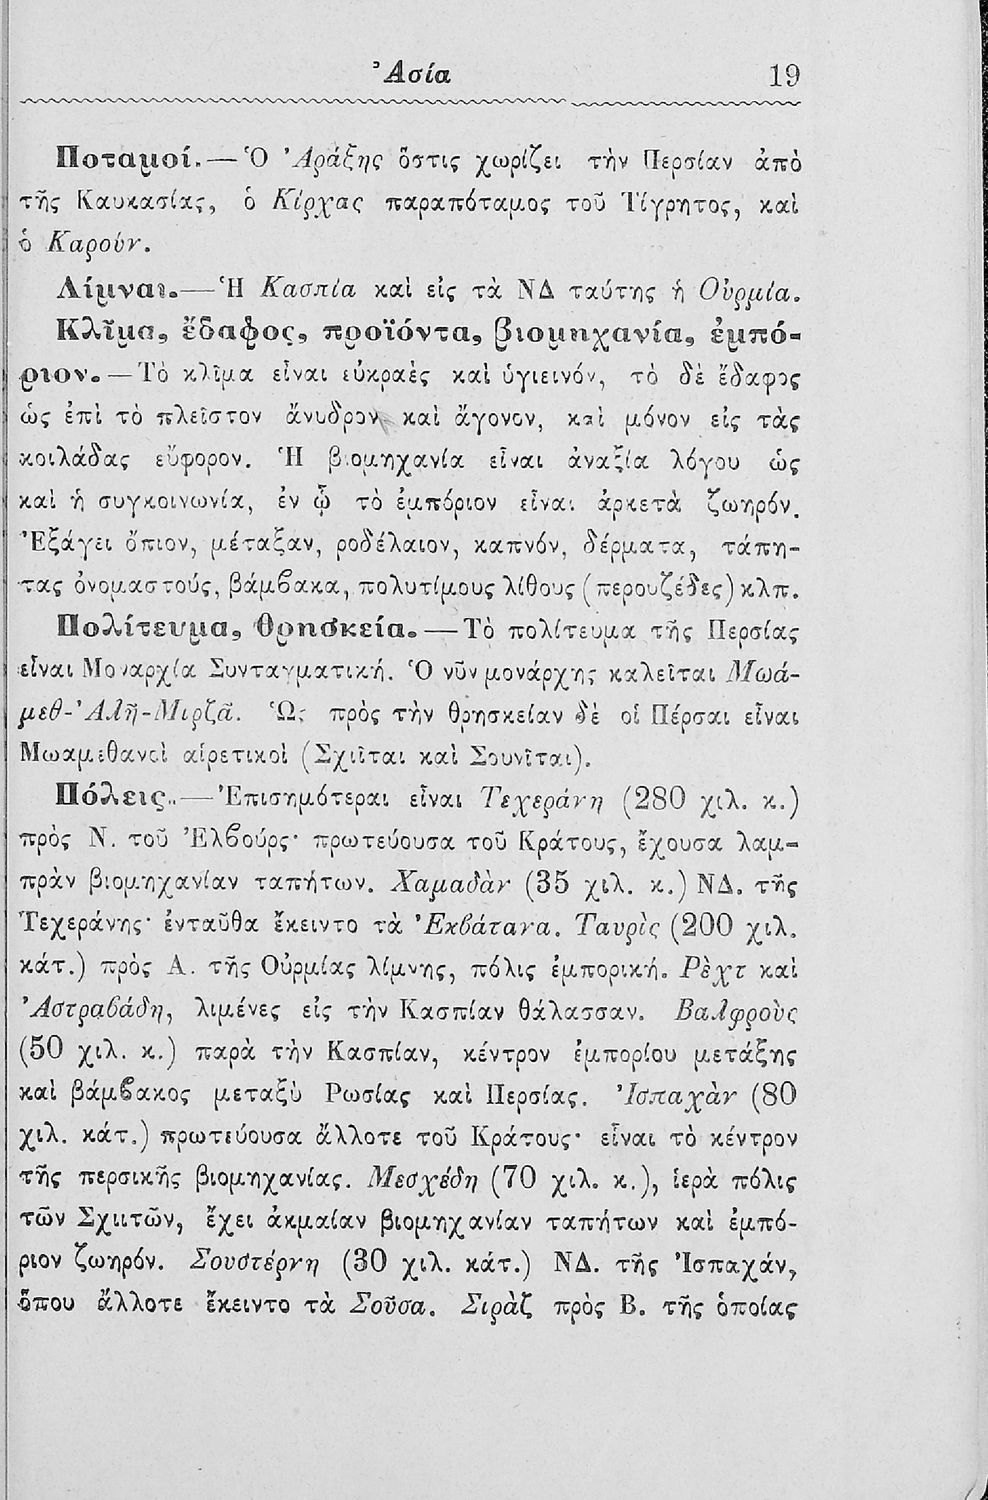 Ἀσία 19
Ποταμοί.—Ὁ Ἀράξης ὅστις χωρίζει τὴν Περσίαν ἀπὸ
τῆς Καυκασίας, ὁ Κίρχας παραπόταμος τοῦ Τίγρητος, καὶ
ὁ Καρούν.
Λίμναι.—Ἡ Κασπία καὶ εἰς τὰ ΝΔ ταύτης ἡ Οὐρμία.
Κλῖμα, ἔδαφος, προϊόντα, βιομηχανία, ἐμπό-
ριον.—Τὸ κλῖμα εἶναι εὐκραὲς καὶ ὑγιεινόν, τὸ δὲ ἔδαφος
ὡς ἐπὶ τὸ πλεῖστον ἄνυδρον καὶ ἄγονον, καὶ μόνον εἰς τὰς
κοιλάδας εὔφορον. Ἡ βιομηχανία εἶναι ἀναξία λόγου ὡς
καὶ ἡ συγκοινωνία, ἐν ᾧ τὸ ἐμπόριον εἶναι ἀρκετὰ ζωηρόν.
Ἐξάγει ὄπιον, μέταξαν, ροδέλαιον, καπνόν, δέρματα, τάπη-
τας ὀνομαστούς, βάμβακα, πολυτίμους λίθους (περουζέδες) κλπ.
Πολίτευμα, Θρησκεία.—Τὸ πολίτευμα τῆς Περσίας
εἶναι Μοναρχία Συνταγματική. Ὁ νῦν μονάρχης καλεῖται Μωά-
μεθ-Ἀλῆ-Μιρζᾶ. Ὡς πρὸς τὴν θρησκείαν δὲ οἱ Πέρσαι εἶναι
Μωαμεθανοὶ αἱρετικοὶ (Σχιῖται καὶ Σουνῖται).
Πόλεις.—Ἐπισημότεραι εἶναι Τεχεράνη (280 χιλ. κ.)
πρὸς Ν. τοῦ Ἐλβούρς· πρωτεύουσα τοῦ Κράτους, ἔχουσα λαμ-
πρὰν βιομηχανίαν ταπήτων. Χαμαδὰν (35 χιλ. κ.) ΝΔ. τῆς
Τεχεράνης· ἐνταῦθα ἔκειντο τὰ Ἐκβάτανα. Ταυρὶς (200 χιλ.
κάτ.) πρὸς Α. τῆς Οὐρμίας λίμνης, πόλις ἐμπορική. Ρὲχτ καὶ
Ἀστραβάδη, λιμένες εἰς τὴν Κασπίαν θάλασσαν. Βαλφροὺς
(50 χιλ. κ.) παρὰ τὴν Κασπίαν, κέντρον ἐμπορίου μετάξης
καὶ βάμβακος μεταξὺ Ρωσίας καὶ Περσίας. Ἰσπαχὰν (80
χιλ. κάτ.) πρωτεύουσα ἄλλοτε τοῦ Κράτους· εἶναι τὸ κέντρον
τῆς περσικῆς βιομηχανίας. Μεσχέδη (70 χιλ. κ.), ἱερὰ πόλις
τῶν Σχιιτῶν, ἔχει ἀκμαίαν βιομηχανίαν ταπήτων καὶ ἐμπό-
ριον ζωηρόν. Σουστέρνη (30 χιλ. κάτ.) ΝΔ. τῆς Ἰσπαχάν,
ὅπου ἄλλοτε ἔκειντο τὰ Σοῦσα. Σιρὰζ πρὸς Β. τῆς ὁποίας